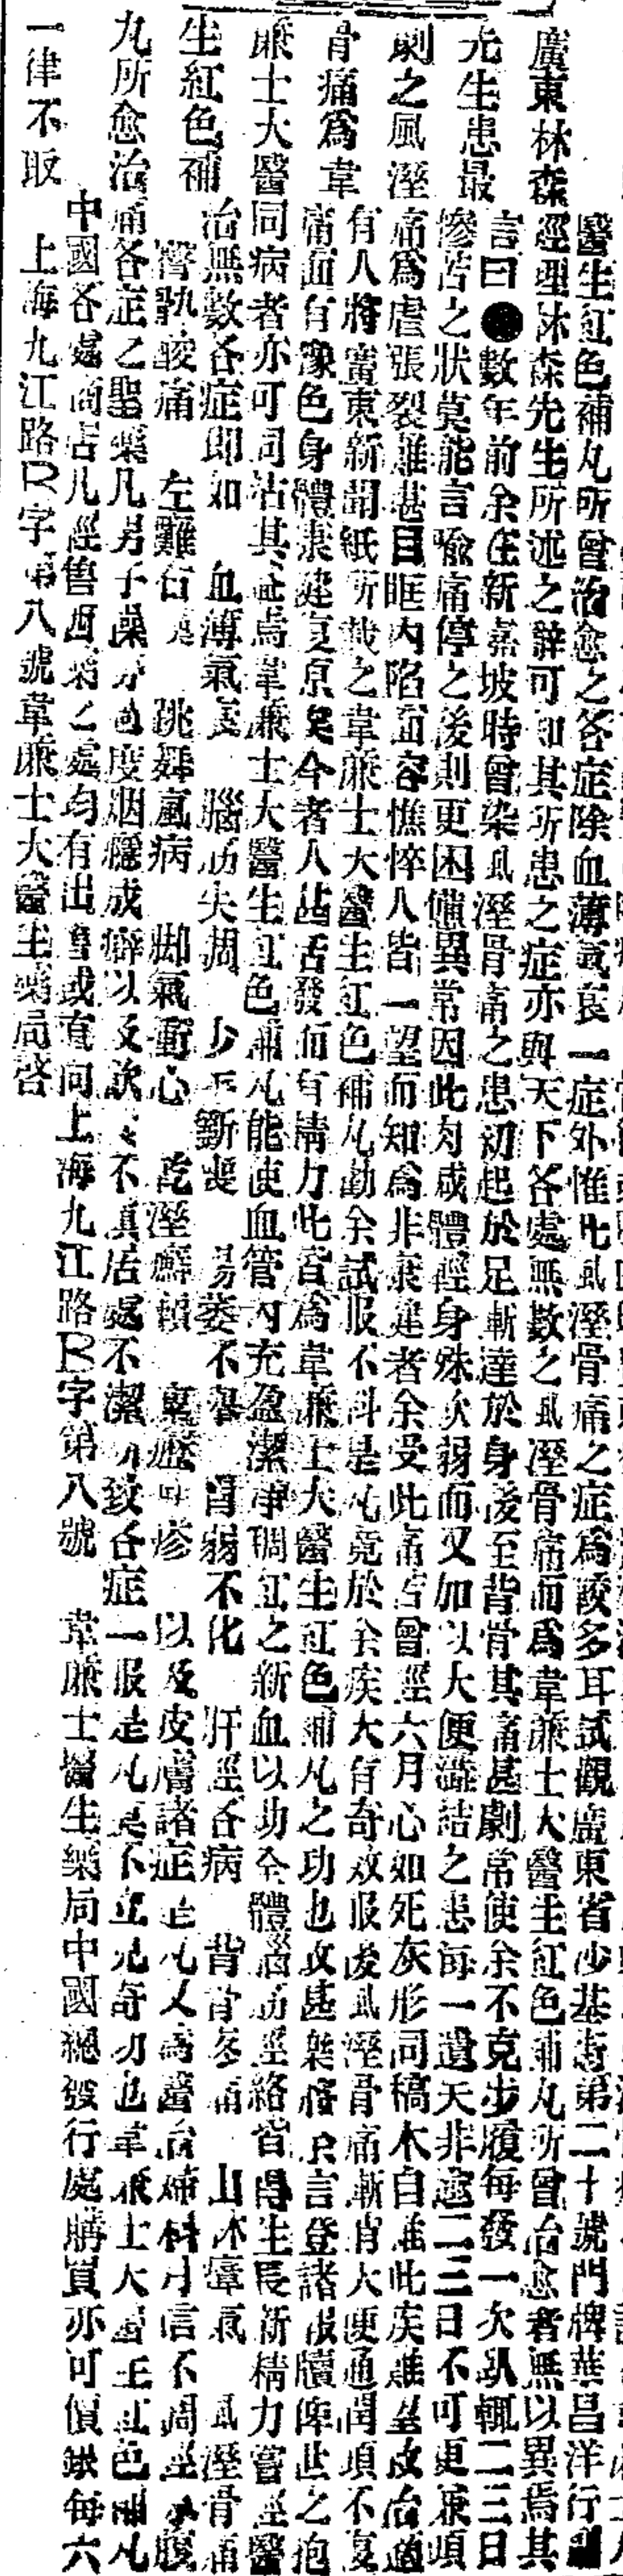 廣東林森
先生患最
劇之風溼
骨痛爲韋
廉士大醫
生紅色補
丸所愈治
醫生紅色補丸所曾治愈之各症除血薄氣衰一症外惟此風溼骨痛之症爲最多耳試觀廣東省沙基街第二十號門牌華昌洋行
經理林森先生所述之辭可知其所患之症亦與天下各處無數之風溼骨痛而爲韋廉士大醫生紅色補丸所曾治愈者無以異焉其
言曰●數年前余在新嘉坡時曾染風溼骨痛之患初起於足漸達於身後至背脊其痛甚劇常使余不克步履每發一次臥輒二三日
慘苦之狀莫能言喩痛停之後則更困憊異常因此肉減體輕身殊欠弱而又加以大便澁結之患每一遺天非逾二三日不可更兼項
痛爲虐張裂難堪目眶內陷面容憔悴人皆一望而知爲非康健者余受此痛苦曾經六月心如死灰形同稿木自維此疾難望改治適
有人將廣東新聞紙所載之韋廉士大醫生紅色補丸勸余試服不料是丸竟於余疾大有奇效服後風溼骨痛漸消大便通閏項不復
痛面有澤色身體康健復原矣今者人甚活潑而有精力此皆爲韋廉士大醫生紅色補丸之功也故甚樂將余言登諸報牘俾世之抱
同病者亦可同沾其益焉韋廉士大醫生紅色補丸能使血管內充盈潔淨稠紅之新血以助全體腦筋經絡皆得生長新精力嘗經醫
治無數各症卽如 血薄氣衰 腦筋失調 少年斵喪 陽萎不舉 胃弱不化 肝經各病 背骨疼痛 山林瘴氣 風溼骨痛
臀骱酸痛 左癱右瘓 跳舞風病 脚氣衝心 乾溼癬 以及皮膚諸症是丸又爲醫治婦科月信不調經來腹
痛各症之聖藥凡男子過度烟癮成癖以及飲食不愼居處不潔所致各症一服是丸莫不立見奇功也韋廉士大醫生紅色補丸
中國各處商店凡經售西藥之處均有出售或直向上海九江路B字第八號 韋廉士醫生藥局中國總發行處購買亦可價銀每六
一律不取 上海九江路B字第八號韋廉士大醫生藥局啓